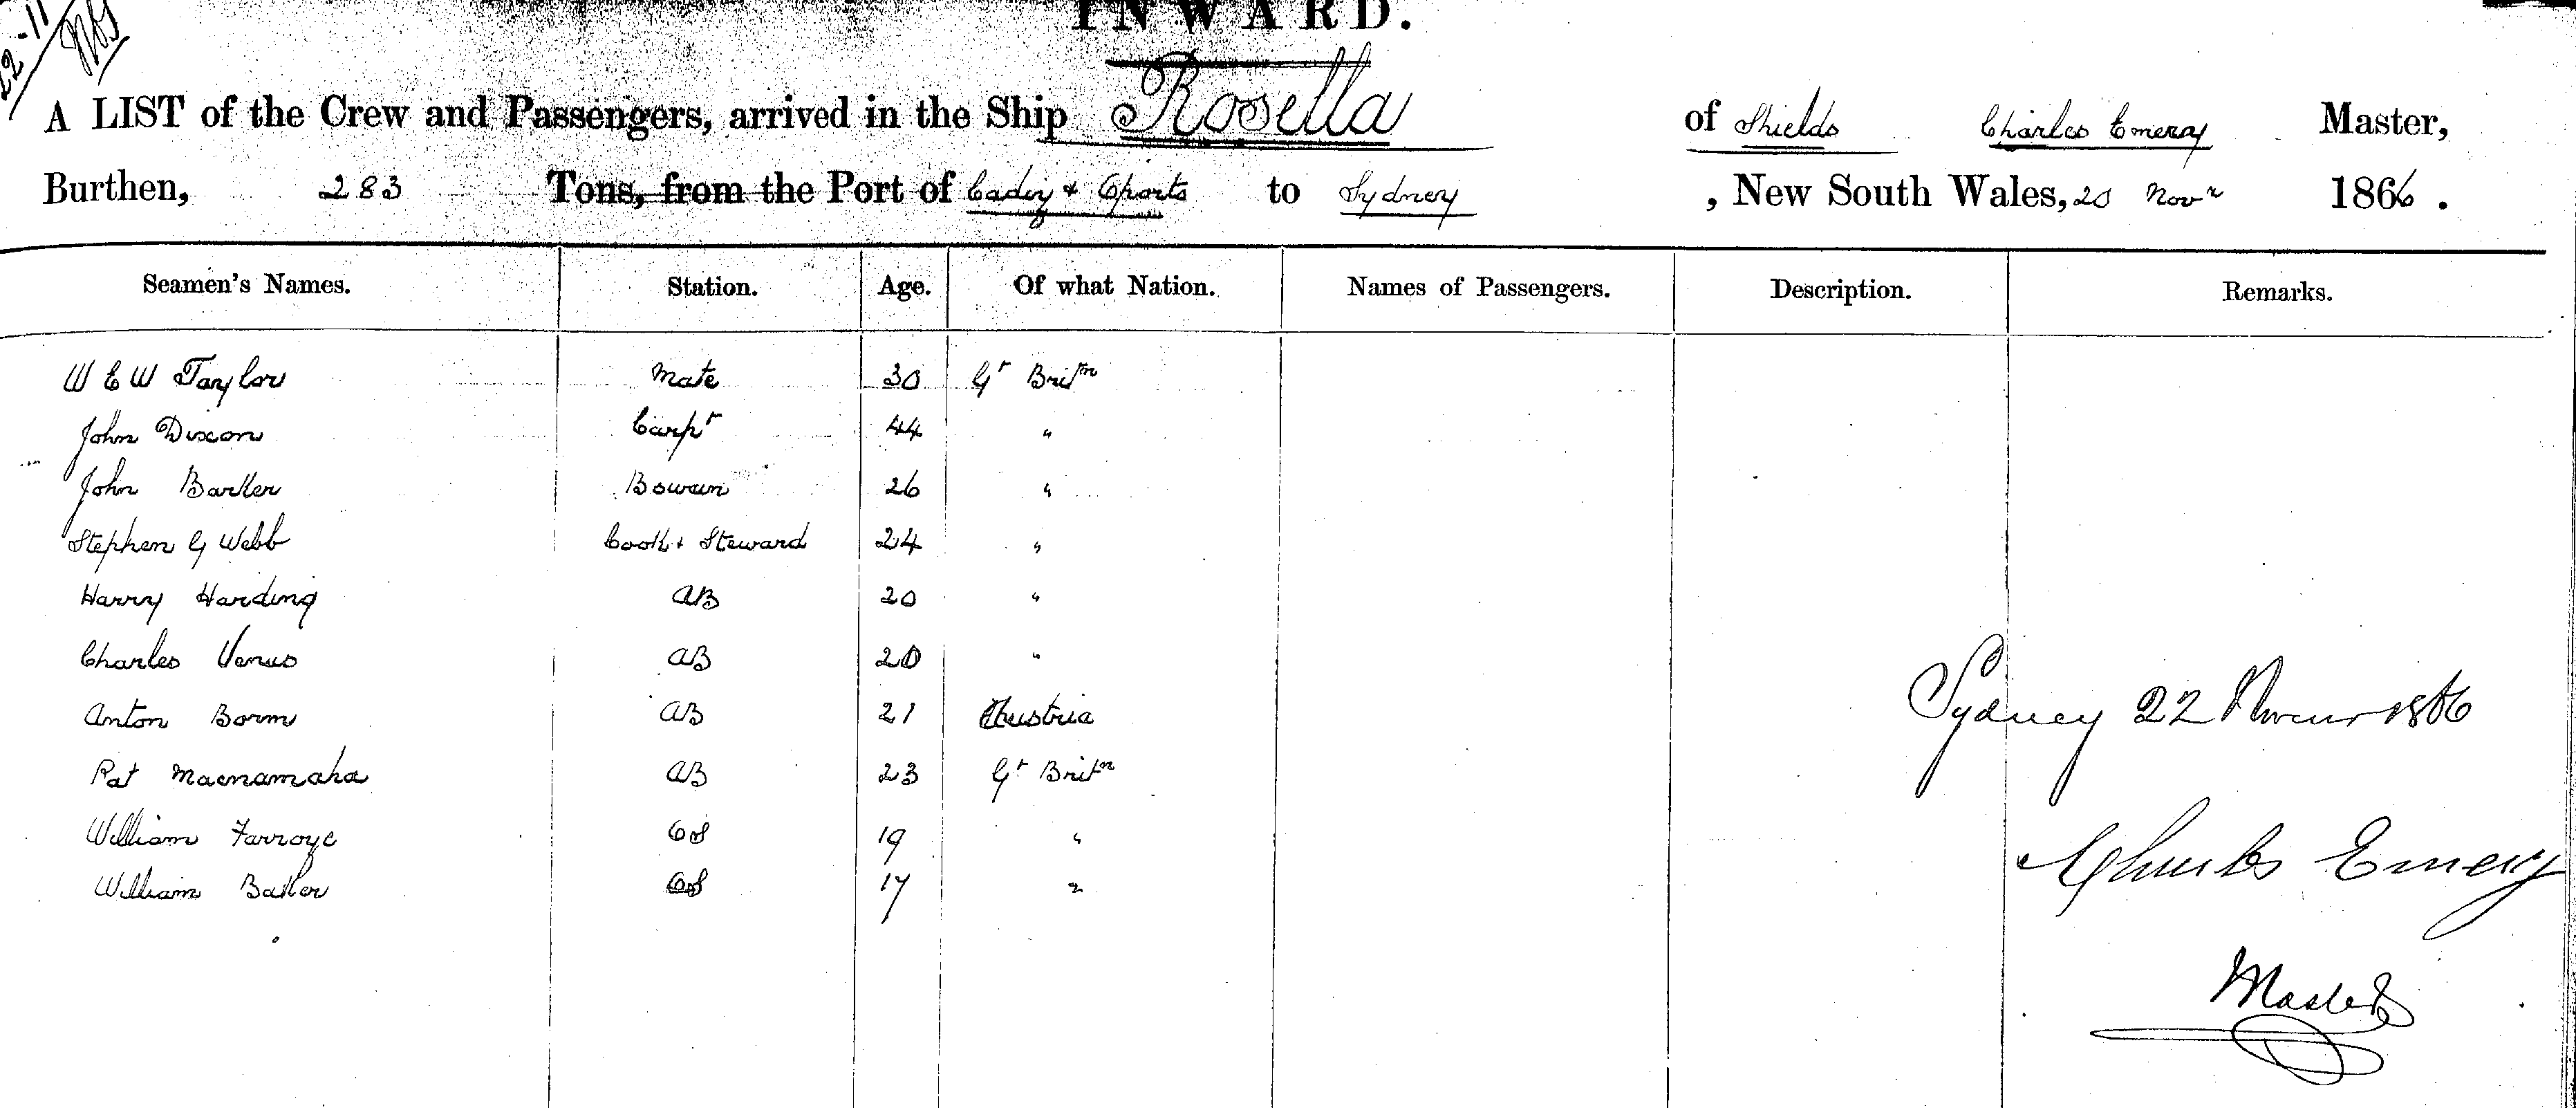 22-11
INWARD.
A LIST of the Crew and Passengers, arrived in the Ship Rosella of Shields Charles Emery Master,
Burthen, 283 Tons, from the Port of Cadiz & Oporto to Sydney, New South Wales, 20 Novr 1866.
Seamen's Names. Station. Age. Of what Nation. Names of Passengers. Description. Remarks.
W E W Taylor Mate 30 Gt Britn
John Dixon Carpr 44 "
John Barker Boswun 26 "
Stephen G Webb Cook & Steward 24 "
Harry Harding AB 20 "
Charles Venus AB 20 "
Anton Borm AB 21 Austria
Sydney 22 1866
Pat Macnamaha AB 23 Gt Britn
William Farroye OS 19 "
Charles Emery
William OS 17 "
Master